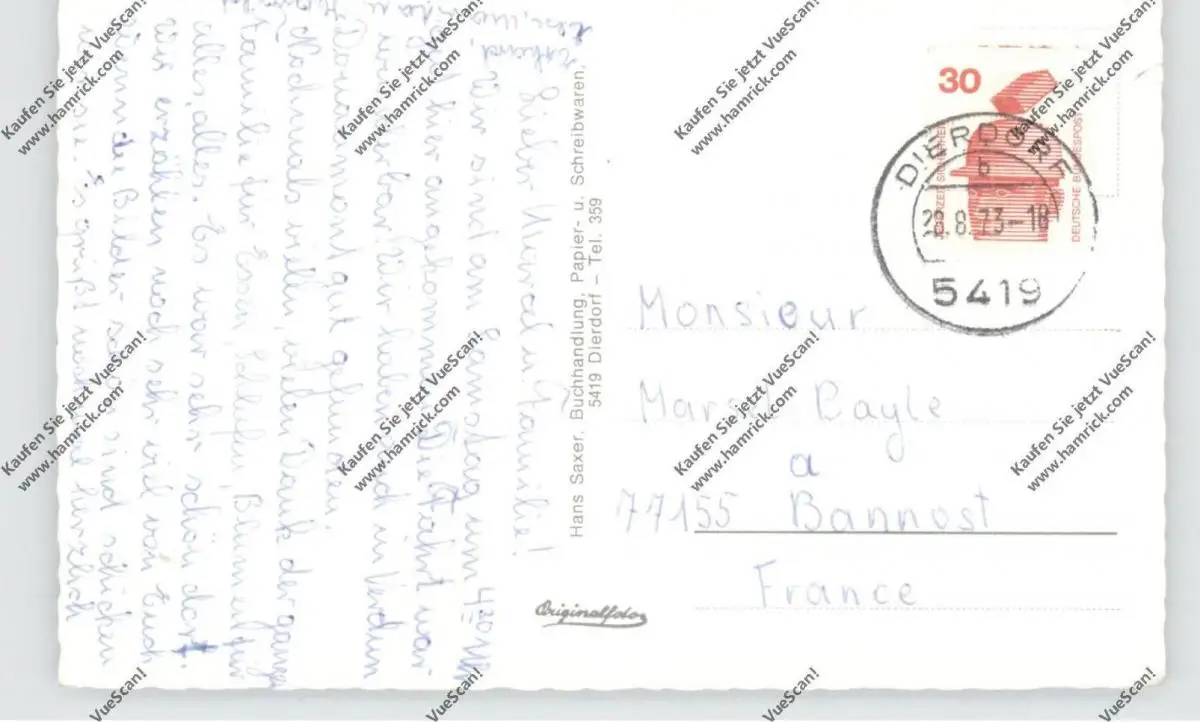 Lieber Marcel u. Familie!
Wir sind am Samstag um 4³⁰ Uhr
gut hier angekommen. Die Fahrt war
wunderbar. Wir haben auch in Verdun
Douaumont gut gefunden.
Nochmals vielen, vielen Dank der ganzen
Familie für Essen, Schlafen, Blumen, für
alles, alles. Es war sehr schön dort.
Wir erzählen noch sehr viel von Euch
wenn die Bilder sind schicken
wir sie. Es grüßt nochmal herzlich
Hans Saxer, Buchhandlung, Papier- u. Schreibwaren,
5419 Dierdorf – Tel. 359
Originalfoto
30
JEDERZEIT SICHERHEIT
DEUTSCHE BUNDESPOST
DIERDORF
b
28.8.73-18
5419
Monsieur
Marcel Cayle
a
77155 Bannost
France
Kaufen Sie jetzt VueScan!
www.hamrick.com